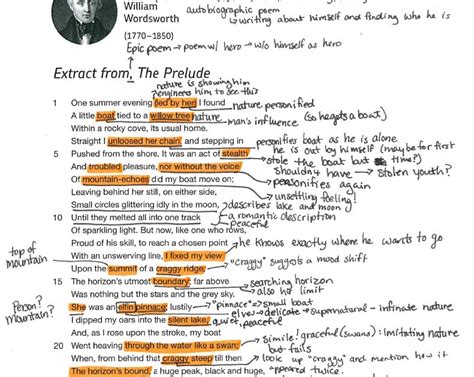 William
Wordsworth
(1770–1850)
autobiographic poem
↳ writing about himself and finding who he is
Epic poem → poem w/ hero → w/o himself as hero
Extract from, The Prelude
nature is showing him
engineers him to see this
1 One summer evening (led by her) I found
nature personified
A little boat tied to a willow tree
nature - man's influence (so he gets a boat)
Within a rocky cove, its usual home.
Straight I unloosed her chain, and stepping in
personifies boat as he is alone
5 Pushed from the shore. It was an act of stealth
he is out by himself (maybe for first time?)
And troubled pleasure, nor without the voice
stole the boat but
shouldn't have → stolen youth?
Of mountain-echoes did my boat move on;
personifies again
Leaving behind her still, on either side,
unsettling feeling!
Small circles glittering idly in the moon,
describes lake and moon
10 Until they melted all into one track
a romantic description
peaceful
Of sparkling light. But now, like one who rows,
Proud of his skill, to reach a chosen point
he knows exactly where he wants to go
With an unswerving line, I fixed my view
top of
mountain
Upon the summit of a craggy ridge,
"craggy" suggests a mood shift
15 The horizon's utmost boundary; far above
searching horizon
also his limit
Was nothing but the stars and the grey sky.
Person?
Mountain?
She was an elfin pinnace; lustily
"pinnace" => small boat
elves → delicate → supernatural - infinate nature
I dipped my oars into the silent lake,
quiet, peaceful
And, as I rose upon the stroke, my boat
20 Went heaving through the water like a swan;
Simile! graceful (swans): imitating nature
but fails
When, from behind that craggy steep till then
look up "craggy" and mention how it
The horizon's bound, a huge peak, black and huge,
appeared twice.